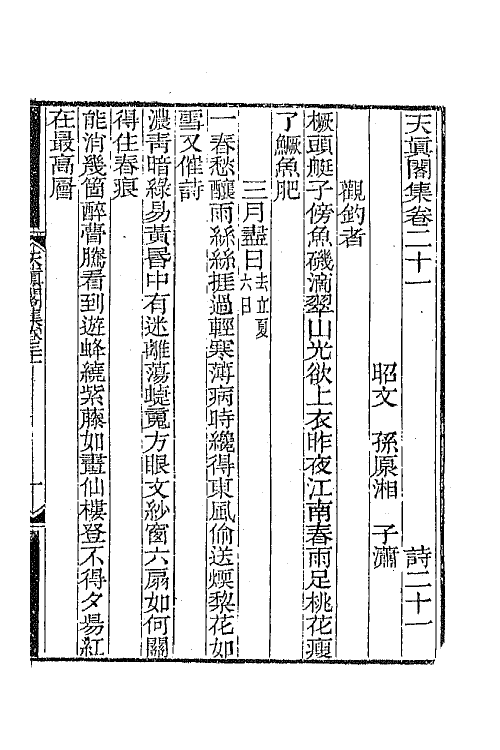 天眞閣集卷二十一　詩二十一
昭文　孫原湘　子瀟
觀釣者
橛頭艇子傍魚磯滴翠山光欲上衣昨夜江南春雨足桃花瘦
了鱖魚肥
三月盡日去立夏六日
一春愁釀雨絲絲捱過輕寒薄病時纔得東風偷送煗棃花如
雪又催詩
濃靑暗綠易黃昬中有迷離蕩蜨䰟方眼文紗窗六扇如何關
得住春痕
能消幾箇醉瞢騰看到遊蜂繞紫藤如畫仙樓登不得夕陽紅
在最高層
天眞閣集卷二十一
一